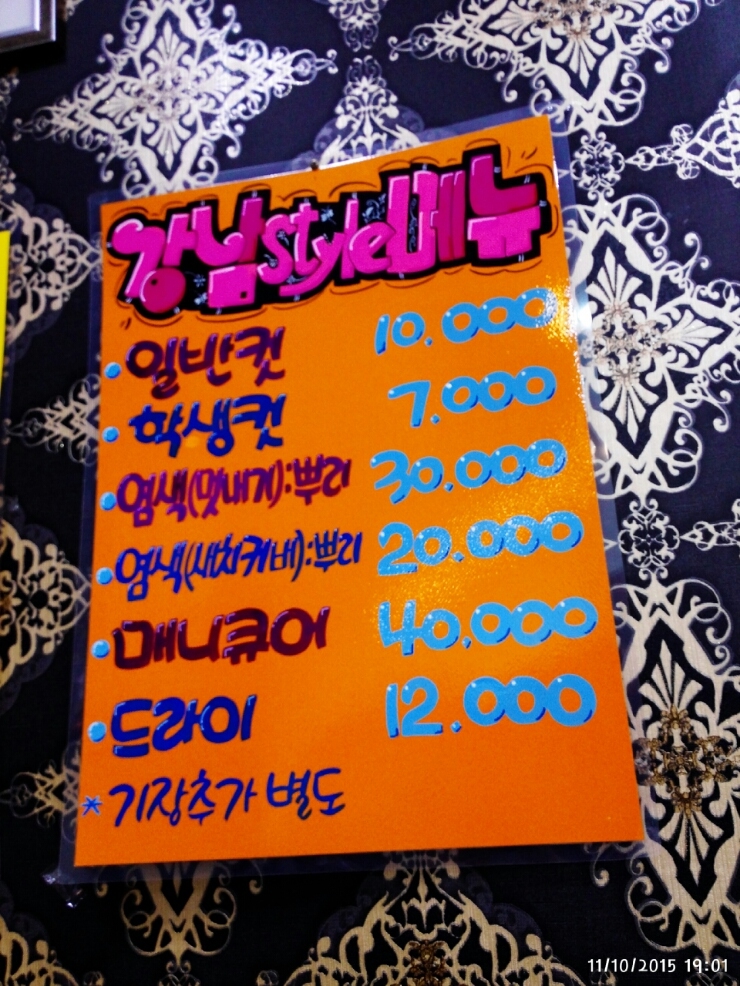 강남style메뉴
• 일반컷 10.000
• 학생컷 7.000
• 염색(멋내기):뿌리 30.000
• 염색(새치커버):뿌리 20.000
• 매니큐어 40,000
• 드라이 12.000
* 기장추가 별도
11/10/2015 19:01